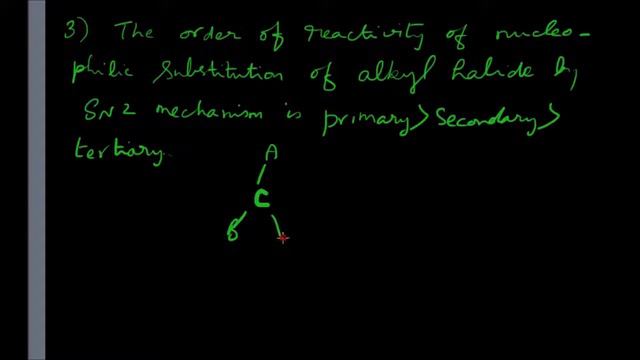 3) The order of reactivity of nucleo-
philic substitution of alkyl halide by
SN2 mechanism is primary > secondary >
tertiary.
A
C
B